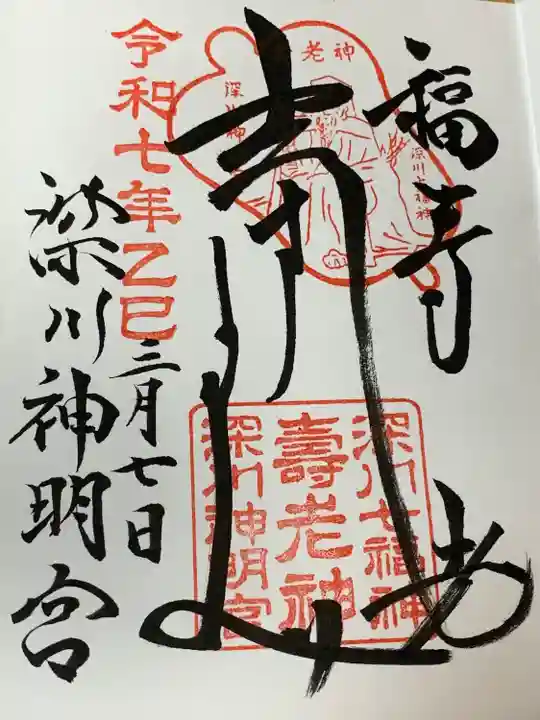 福寿
老
深川七福神
老神
深川神
深川七福神
壽老神
深川神明宮
令和七年乙巳
三月七日
深川神明宮